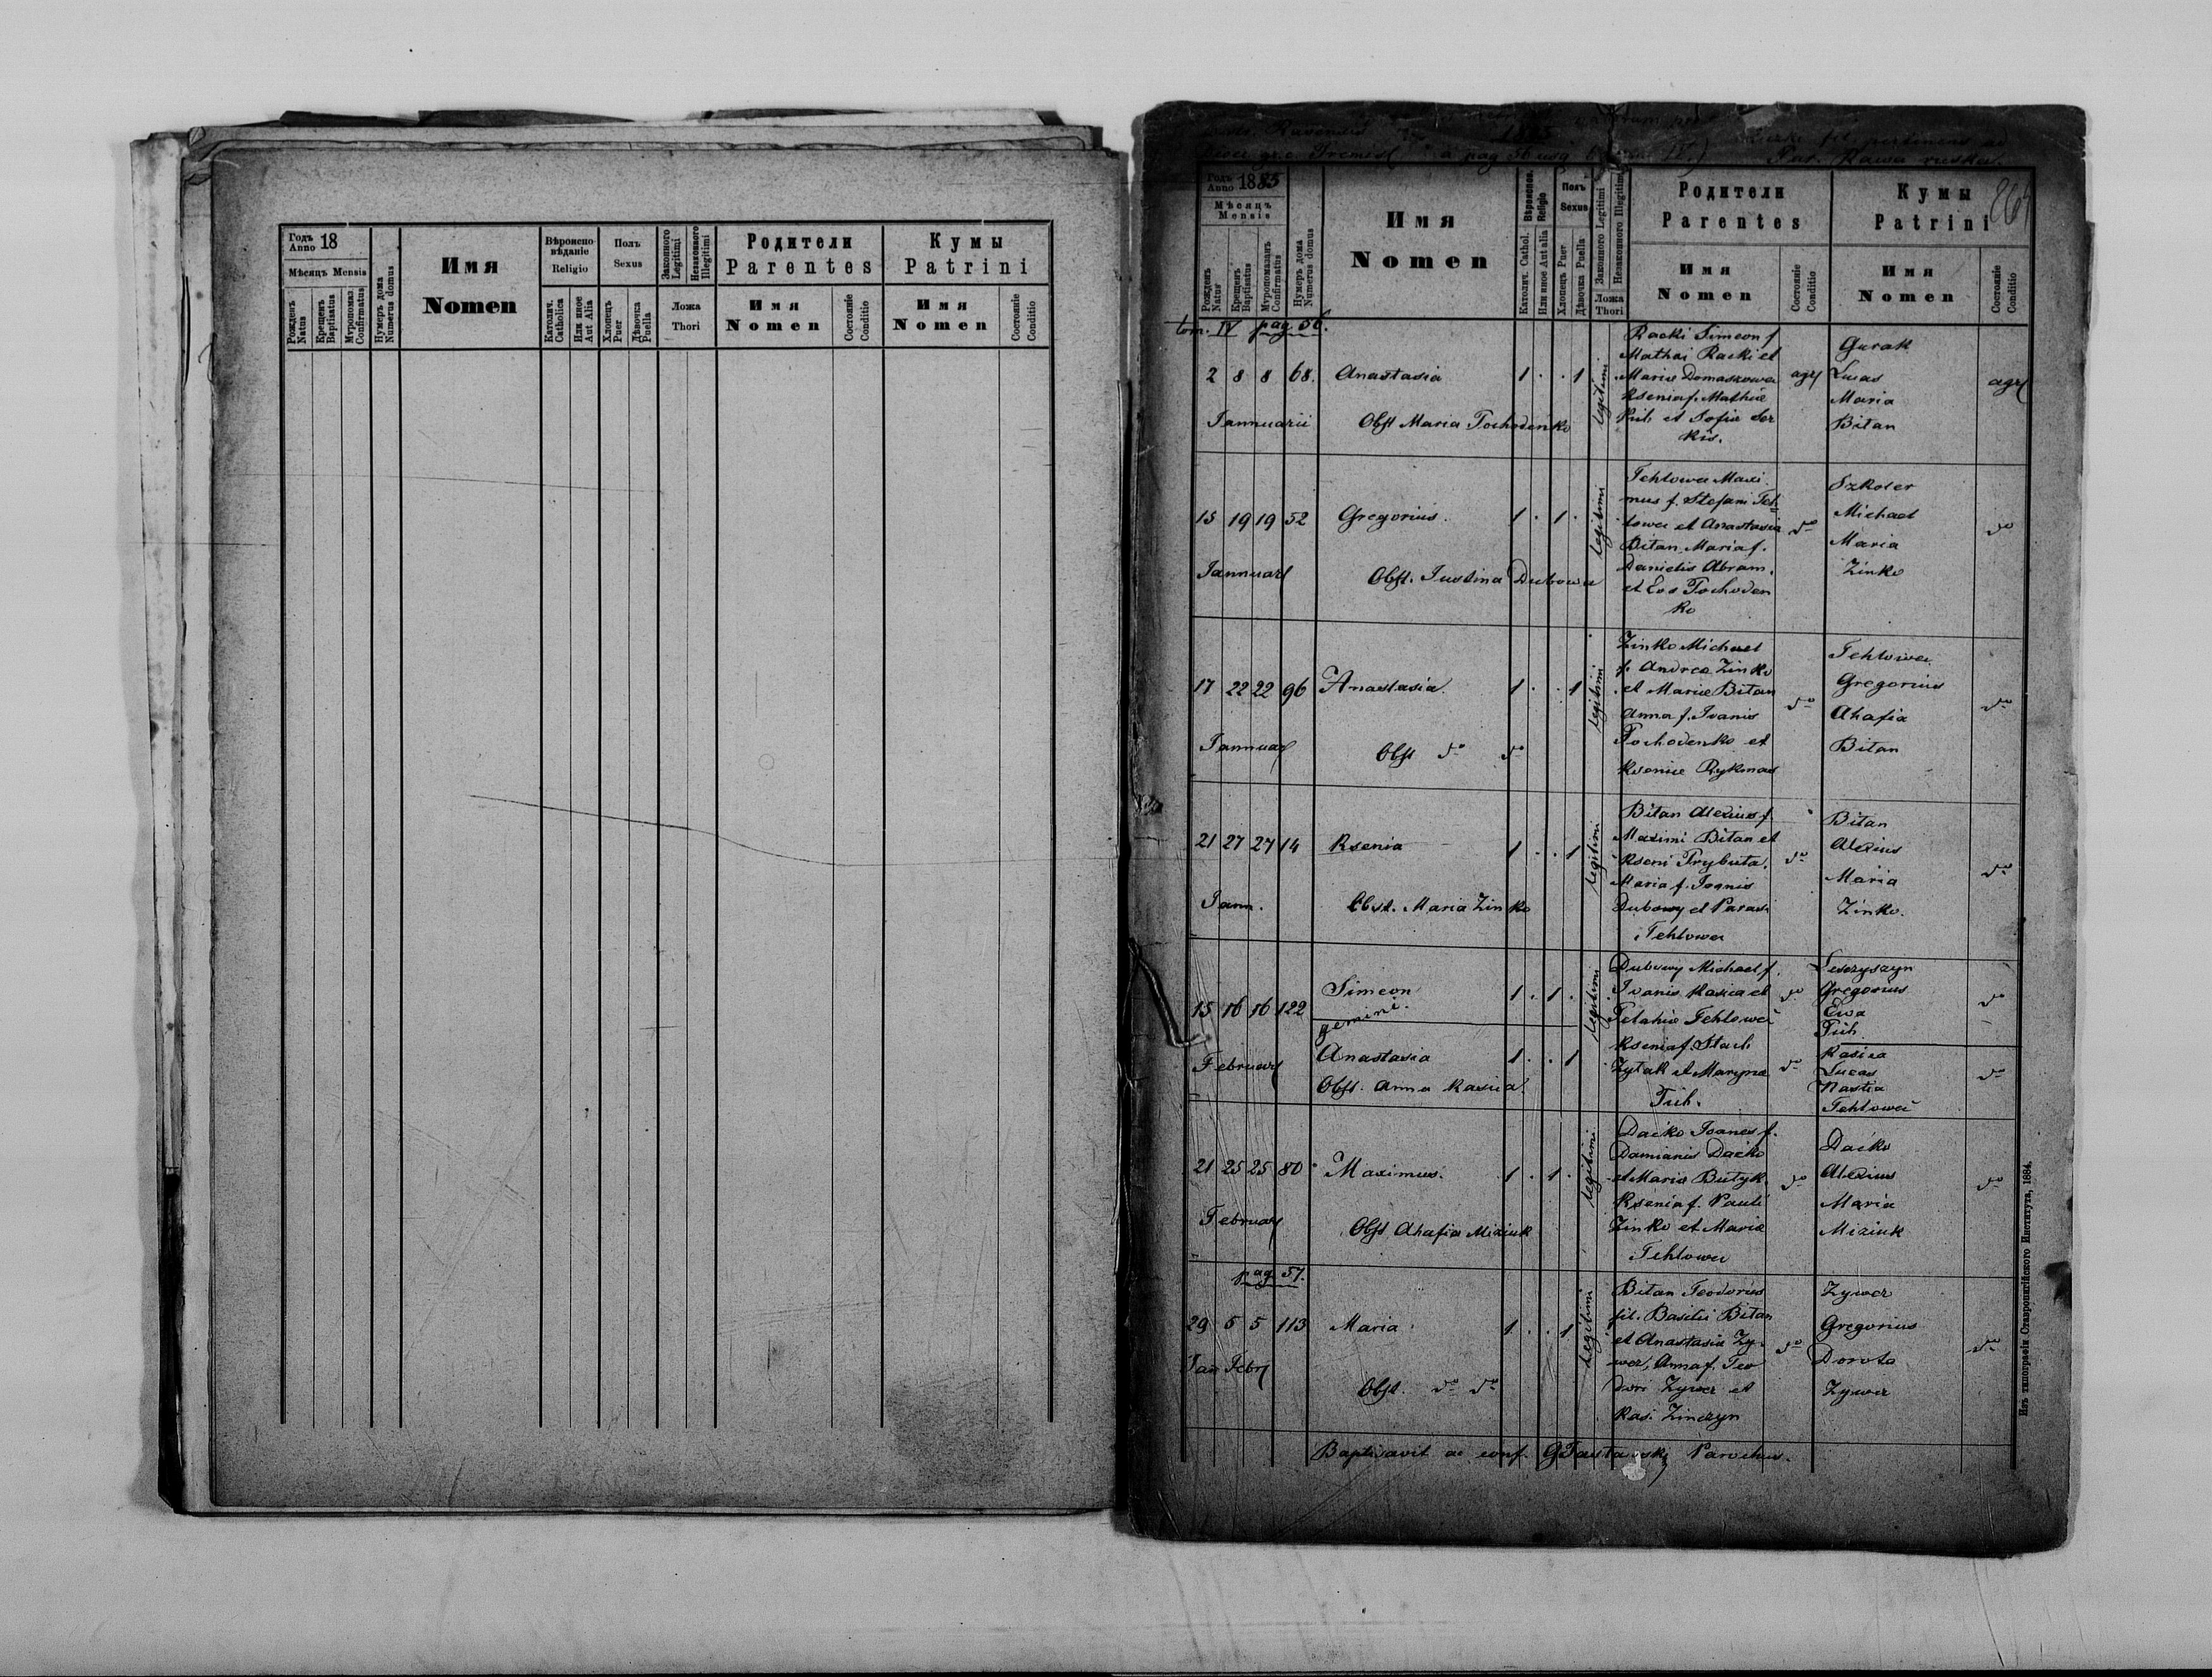 Годъ Anno 18
Мѣсяцъ Mensis
Рожденъ Natus
Крещенъ Baptisatus
Мѵропомаз. Confirmatus
Нумеръ дома Numerus domus
Имя
Nomen
Вѣроиспо-вѣданіе
Religio
Католич. Catholica
Или иное Aut Alia
Полъ
Sexus
Хлопецъ Puer
Дѣвочка Puella
Законного Legitimi
Незаконного Illegitimi
Ложа
Thori
Родители
Parentes
Имя
Nomen
Состояніе
Conditio
Кумы
Patrini
Имя
Nomen
Состояніе
Conditio
1885
a pag 56 usq
pertinens ad
Rawa ruska.
Годъ Anno 1885
Мѣсяцъ
Mensis
Рожденъ Natus
Крещенъ Baptisatus
Мѵропомазанъ Confirmatus
Нумеръ дома Numerus domus
Имя
Nomen
Вѣроиспов. Religio
Католич. Cathol.
Или иное Aut alia
Полъ
Sexus
Хлопецъ Puer
Дѣвочка Puella
Законного Legitimi
Незаконного Illegitimi
Ложа
Thori
Родители
Parentes
Имя
Nomen
Состояніе
Conditio
Кумы
Patrini
Имя
Nomen
Состояніе
Conditio
tom. IV pag. 56.
2 8 8 68. Anastasia 1 . . 1 legitimi
Januarii Obst Maria Pochodenko
Racki Simeon f
Mathei Racki et
Mariae Domaskowa
Ksenia f. Mathei
Pih et Sofia Ser
kis.
agr
Gurak
Lucas
Maria
Bitan
agr
15 19 19 52 Gregorius. 1 . 1 . legitimi
Januar Obst. Justina Dubowa
Tehlowec Maxi
mus f. Stefani Teh
lowec et Anastasia
Bitan, Maria f.
Danielis Abram.
et Eva Pochoden
ko
do
Szkoler
Michael
Maria
Zinko
do
17 22 22 96 Anastasia. 1 . . 1 legitimi
Januar Obst do do
Zinko Michael
f. Andrea Zinko
et Mariae Bitan
Anna f. Ivanis
Pochodenko et
Ksenia Rykmas
do
Tehlowec
Gregorius
Ahafia
Bitan
do
21 27 27 14 Ksenia 1 . . 1 legitimi
Jann. Obst. Maria Zinko
Bitan Alexius f.
Maximi Bitan et
Kseni Prybuta.
Maria f. Joanis
Dubowy et Paras
Tehlowec
do
Bitan
Alexius
Maria
Zinko.
do
15 16 16 122 Simeon 1 . 1 . legitimi
gemini.
Anastasia 1 . . 1
Februar Obst. Anna Kasica
Dubowy Michael f.
Ivanis Kasica et
Pelahia Tehlowec
Ksenia f. Stach
Zytak et Maryna
Pih.
do
do
Leszyszyn
Gregorius
Ewa
Pih
Kasica
Lucas
Nastia
Tehlowec
do
do
21 25 25 80 Maximus. 1 . 1 . legitimi
Februar Obst Ahafia Miziuk
Dacko Joanes f.
Damianis Dacko
et Maria Butyk
Ksenia f. Pauli
Zinko et Maria
Tehlowec
do
Dacko
Alexius
Maria
Miziuk
do
pag 57.
29 5 5 113 Maria 1 . . 1 Legitimi
Jan Febr
Obst. do do
Bitan Teodorus
fil. Basilii Bitan
et Anastasia Zy-
wer, Anna f. Teo
dori Zywer et
Kas. Zinczyn
do
Zywer
Gregorius
Dorota
Zywer
do
Baptisavit ac conf. Parochus.
Изъ типографіи Ставропигійского Института, 1884.